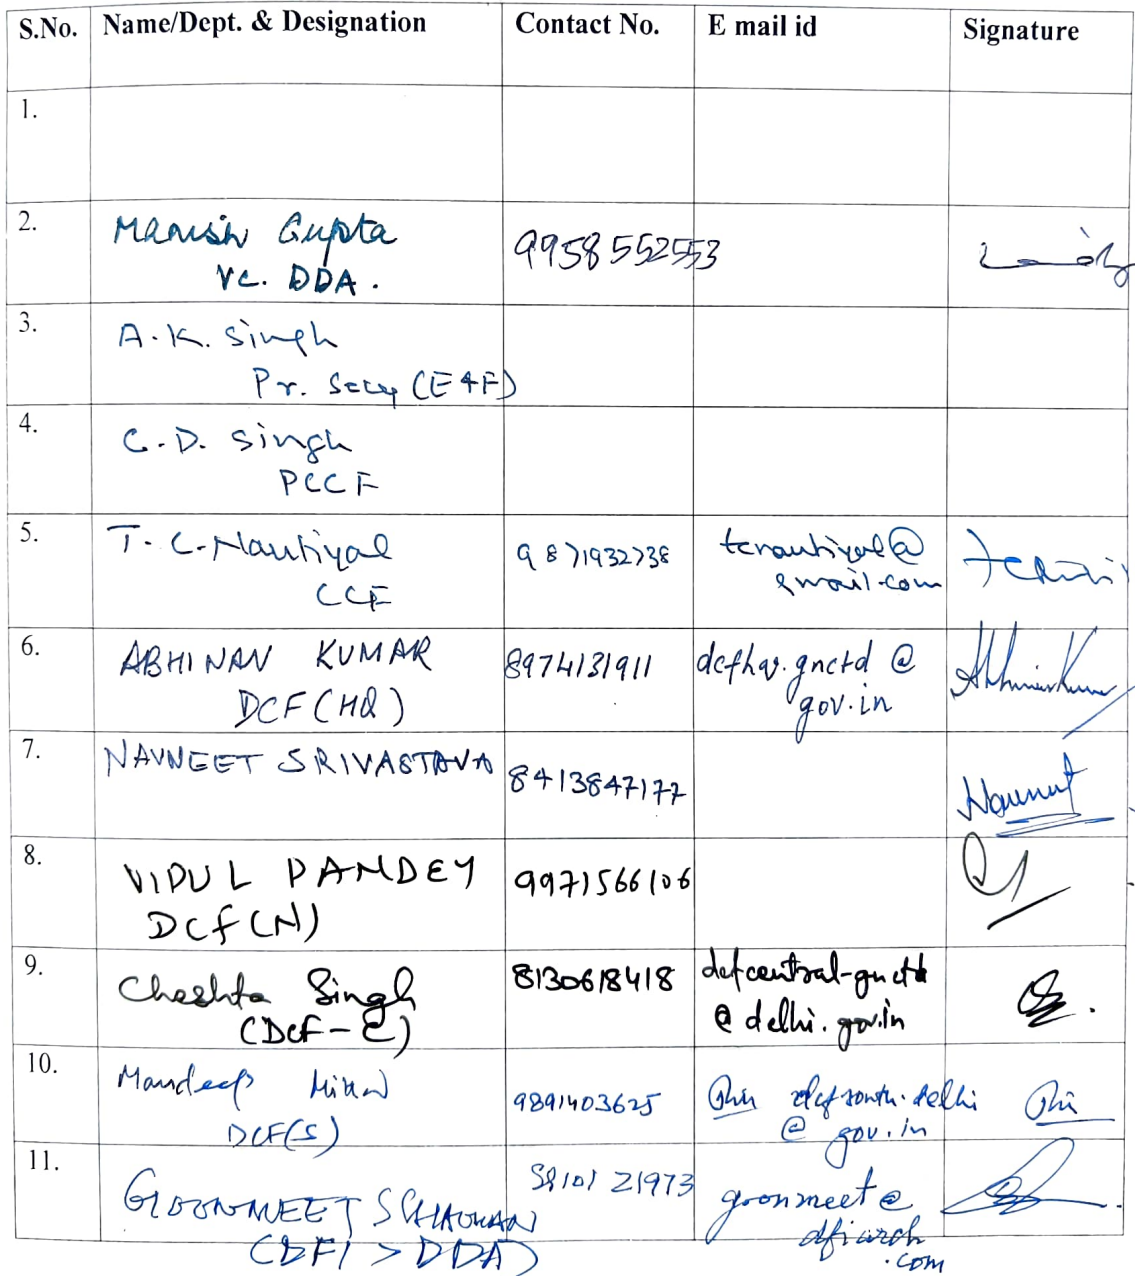 S.No. Name/Dept. & Designation Contact No. E mail id Signature
1.
2. Manish Gupta 9958552553
VC. DDA.
3. A.K. Singh
Pr. Secy (E&F)
4. C.D. Singh
PCCF
5. T.C. Nautiyal 9871932738 tcnautiyal@
CCF gmail.com
6. ABHINAV KUMAR 8974131911 dcfhq.gnctd @
DCF (HQ) gov.in
7. NAVNEET SRIVASTAVA 8413847177
8. VIPUL PANDEY 9971566106
DCF (N)
9. Cheshta Singh 8130618418 dcfcentral-gnctd
(DCF-C) @ delhi.gov.in
10. Mandeep 9891403625 dcfsouth.delhi
DCF(S) @ gov.in
11. GOONMEET S CHAUHAN goonmeet@
(DFI > DDA) dfiarch
.com